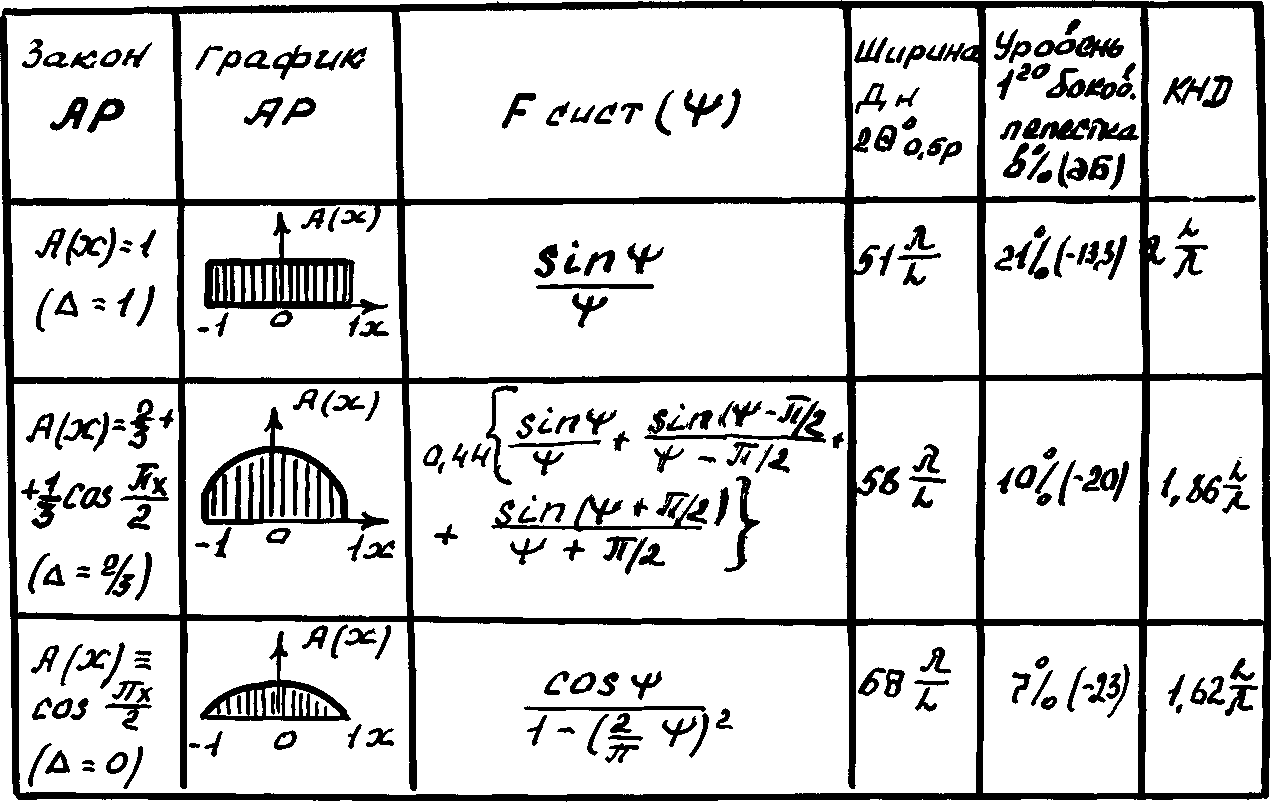 Закон
АР
График
АР
F сист (Ψ)
Ширина
ДН
2θ°0,5р
Уровень
1го боков.
лепестка
в % (дБ)
КНД
A(x)=1
(Δ = 1)
A(x)
-1 0 1 x
sin Ψ
Ψ
51 λ/L
21% (-13,3)
2 L/λ
A(x)=2/3+
+1/3 cos πx/2
(Δ = 2/3)
A(x)
-1 0 1 x
0,44{ sinΨ/Ψ + sin(Ψ-π/2/Ψ - π/2 +
+ sin(Ψ + π/2)/Ψ + π/2 }
58 λ/L
10% (-20)
1,86 L/λ
A(x) =
cos πx/2
(Δ = 0)
A(x)
-1 0 1 x
cos Ψ
1 - (2/π Ψ)²
68 λ/L
7% (-23)
1,62 L/λ